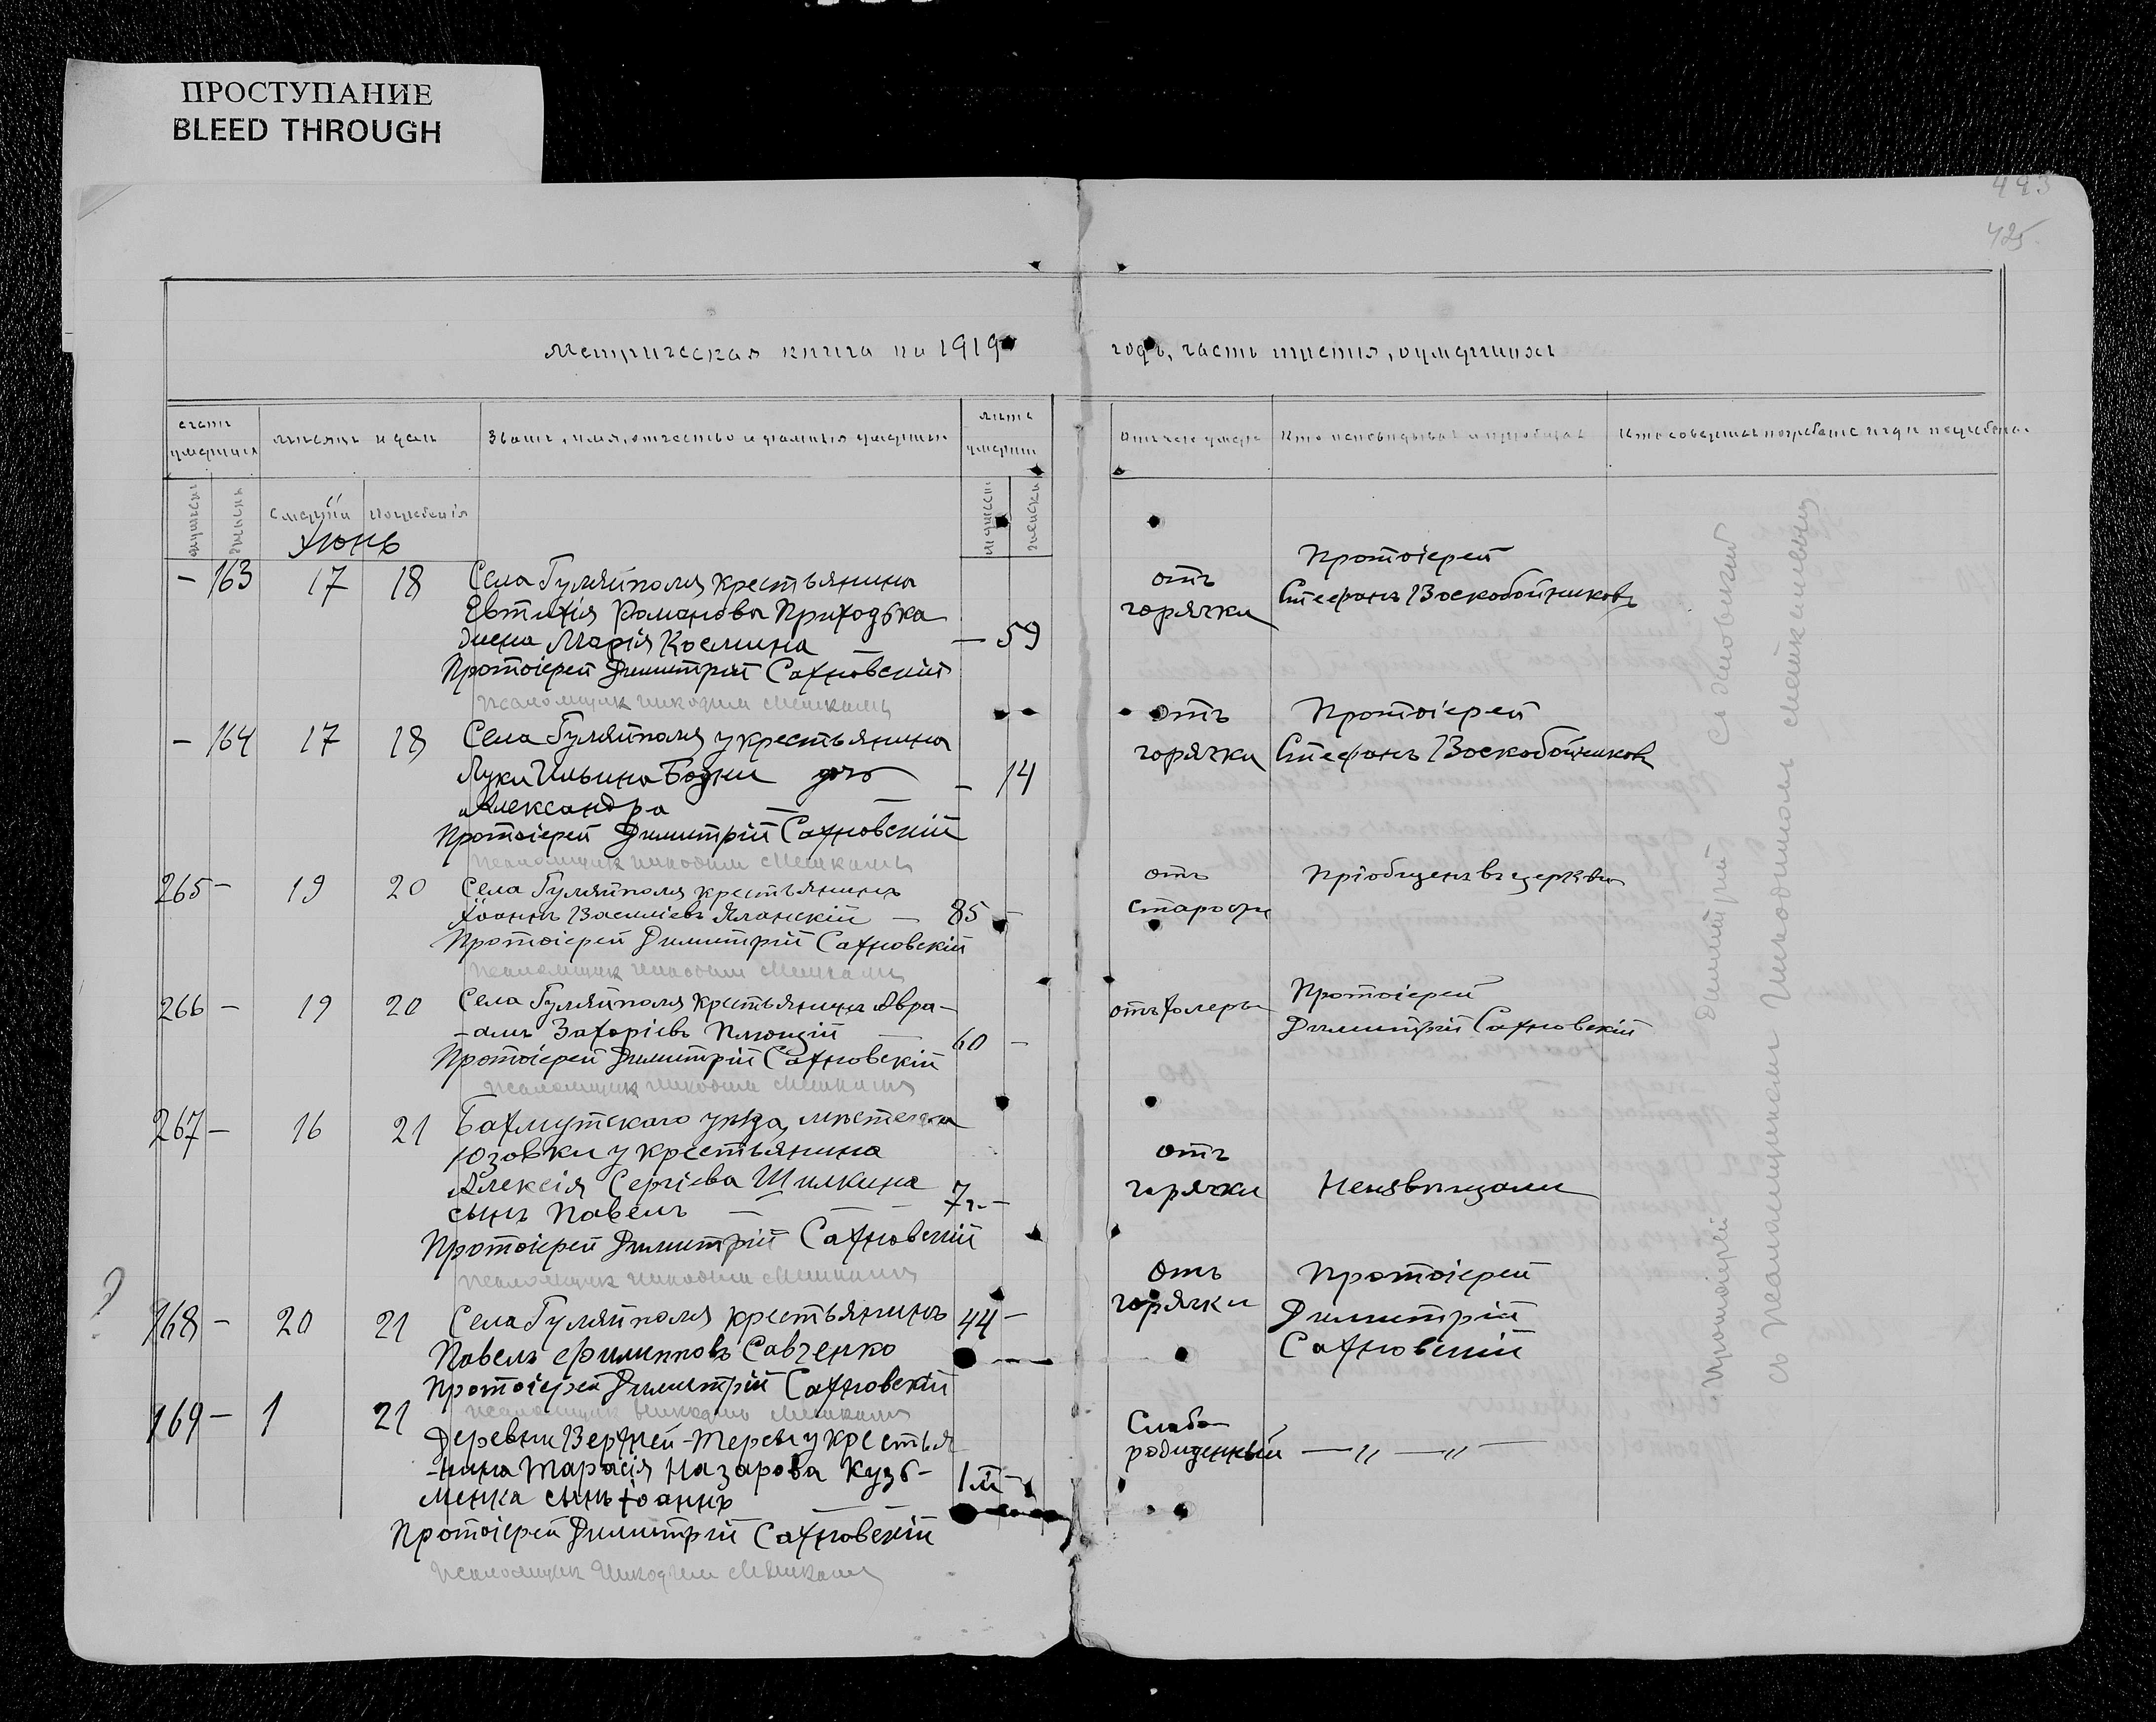 ПРОСТУПАНИЕ
BLEED THROUGH
493
425.
Метрическая книга на 1919
годъ, часть третья, о умершихъ
счетъ умершихъ
мѣсяцъ и день
Званіе, имя, отчество и фамилія умершихъ
лѣта умершихъ
Отчего умеръ
Кто исповѣдывалъ и пріобщалъ
Кто совершалъ погребеніе и гдѣ погребены
мужеска
женска
смерти
погребенія
мужеск
женска
Іюнь
— 163 17 18 Села Гуляйполя крестьянина
Евтихія Романова Приходька
жена Марія Космина — 59
Протоіерей Димитрій Сахновскій
псаломщикъ Никодимъ
отъ горячки
Протоіерей
Стефанъ Воскобойниковъ
— 164 17 18 Села Гуляйполя у крестьянина
Луки Ильина Бодни дочь — 14
Александра
Протоіерей Димитрій Сахновскій
псаломщикъ Никодимъ
отъ горячки
Протоіерей
Стефанъ Воскобойниковъ
265 — 19 20 Села Гуляйполя крестьянинъ
Іоаннъ Василіевъ Яланскій — 85 —
Протоіерей Димитрій Сахновскій
псаломщикъ Никодимъ
отъ старости
Пріобщенъ въ церкви
266 — 19 20 Села Гуляйполя крестьянинъ Авра-
-амъ Захаріевъ Плющій — 60 —
Протоіерей Димитрій Сахновскій
псаломщикъ Никодимъ
отъ холеры
Протоіерей
Димитрій Сахновскій
267 — 16 21 Бахмутского уѣзда, мѣстечка
Юзовки у крестьянина
Алексія Сергіева Шилкина
сынъ Павелъ — — 7 г. —
Протоіерей Димитрій Сахновскій
псаломщикъ Никодимъ
отъ горячки
?
168 — 20 21 Села Гуляйполя крестьянинъ 44 —
Павелъ Филипповъ Савченко
Протоіерей Димитрій Сахновскій
псаломщикъ Никодимъ
отъ горячки
Протоіерей
Димитрій
Сахновскій
169 — 1 21 Деревни Верхней-Терсы у крестья
-нина Тарасія Назарова Кузь-
менка сынъ Іоаннъ — 1 м —
Протоіерей Димитрій Сахновскій
псаломщикъ Никодимъ
Слабо-
рожденный — „ — „ —
Протоіерей Димитрій Сахновскій
съ псаломщикомъ Никодимомъ